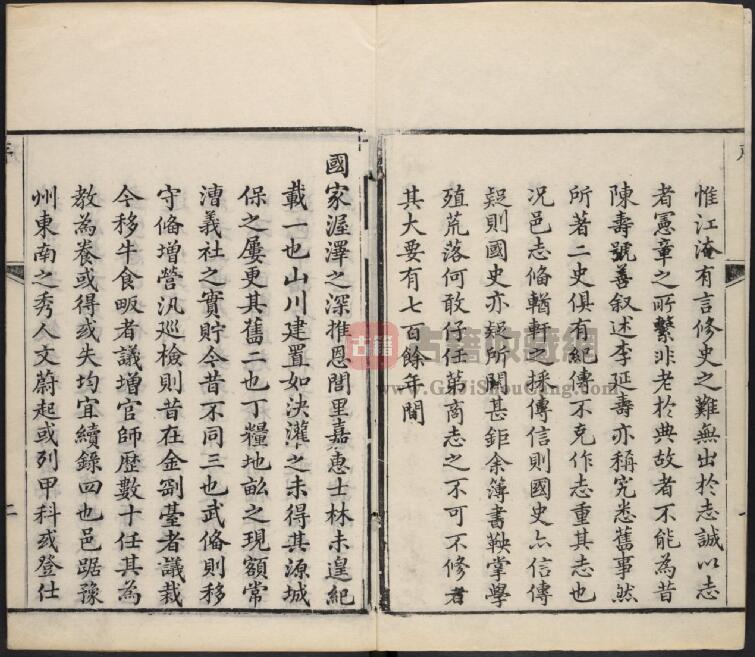 惟江淹有言修史之難無出於志誠以志
者憲章之所繫非老於典故者不能為昔
陳壽號善叙述李延壽亦稱究悉舊事然
所著二史俱有紀傳不克作志重其志也
况邑志偹輶軒之採傳信則國史亦信傳
疑則國史亦疑所關甚鉅余簿書鞅掌學
殖荒落何敢仔任第商志之不可不修者
其大要有七百餘年間
國家渥澤之深推恩閭里嘉惠士林未遑紀
載一也山川建置如决灌之未得其源城
保之屢更其舊二也丁糧地畝之現額常
漕義社之實貯今昔不同三也武偹則移
守偹增營汛巡檢則昔在金劄臺者議裁
今移牛食畈者議增官師歷數十任其為
教為養或得或失均宜續錄四也邑踞豫
州東南之秀人文蔚起或列甲科或登仕
二
古籍收藏網
www.GuJiShouCang.com